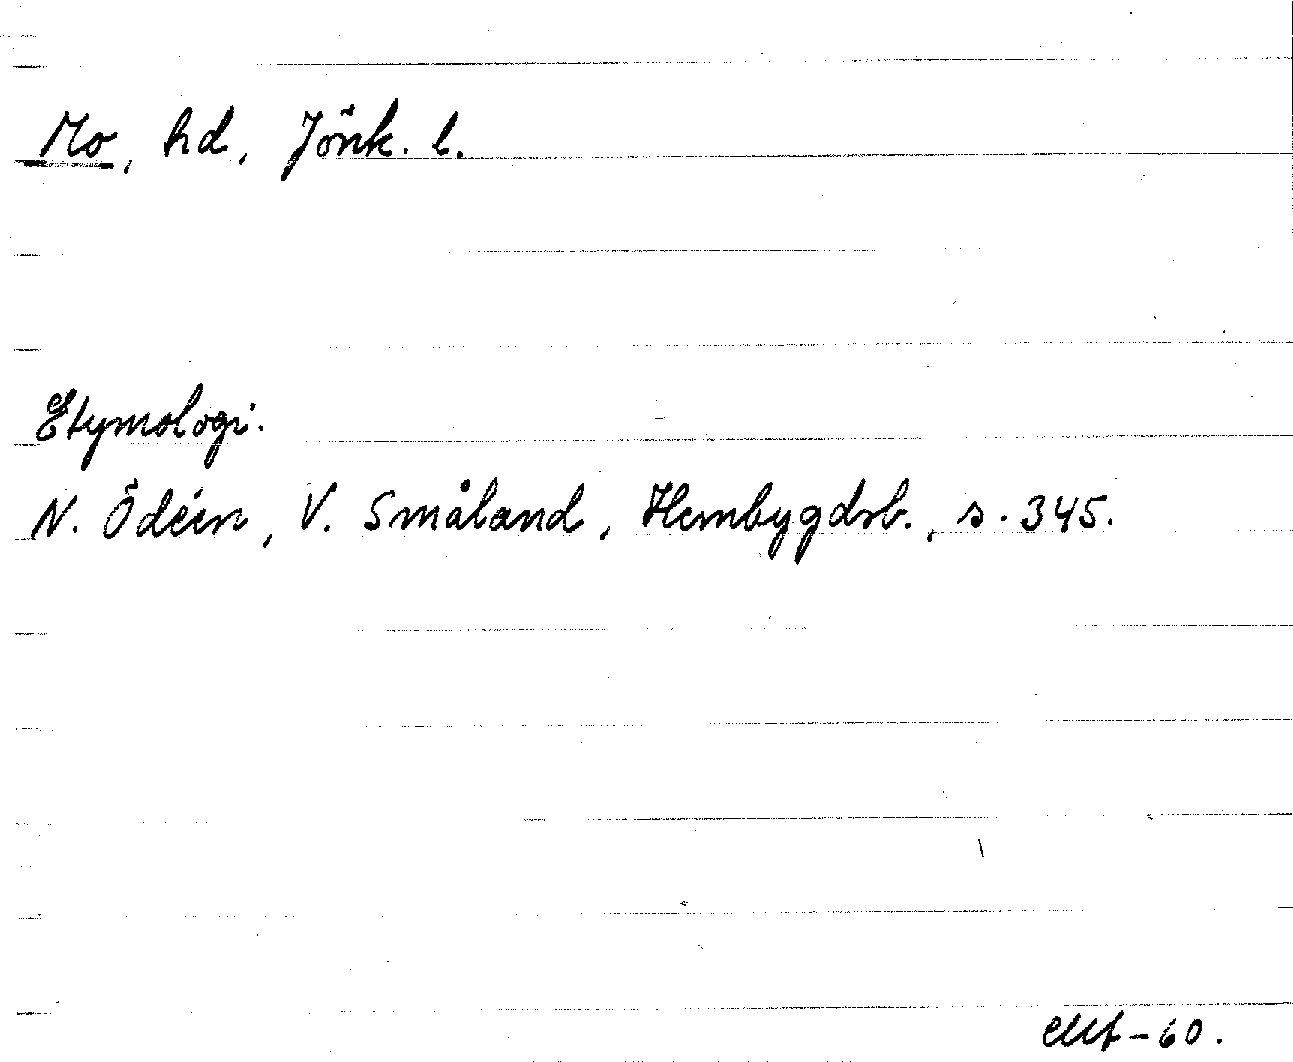 Mo, hd, Jönk. l.
Etymologi.
N. Ödéen, V. Småland, Hembygdsb., s. 345.
-60.